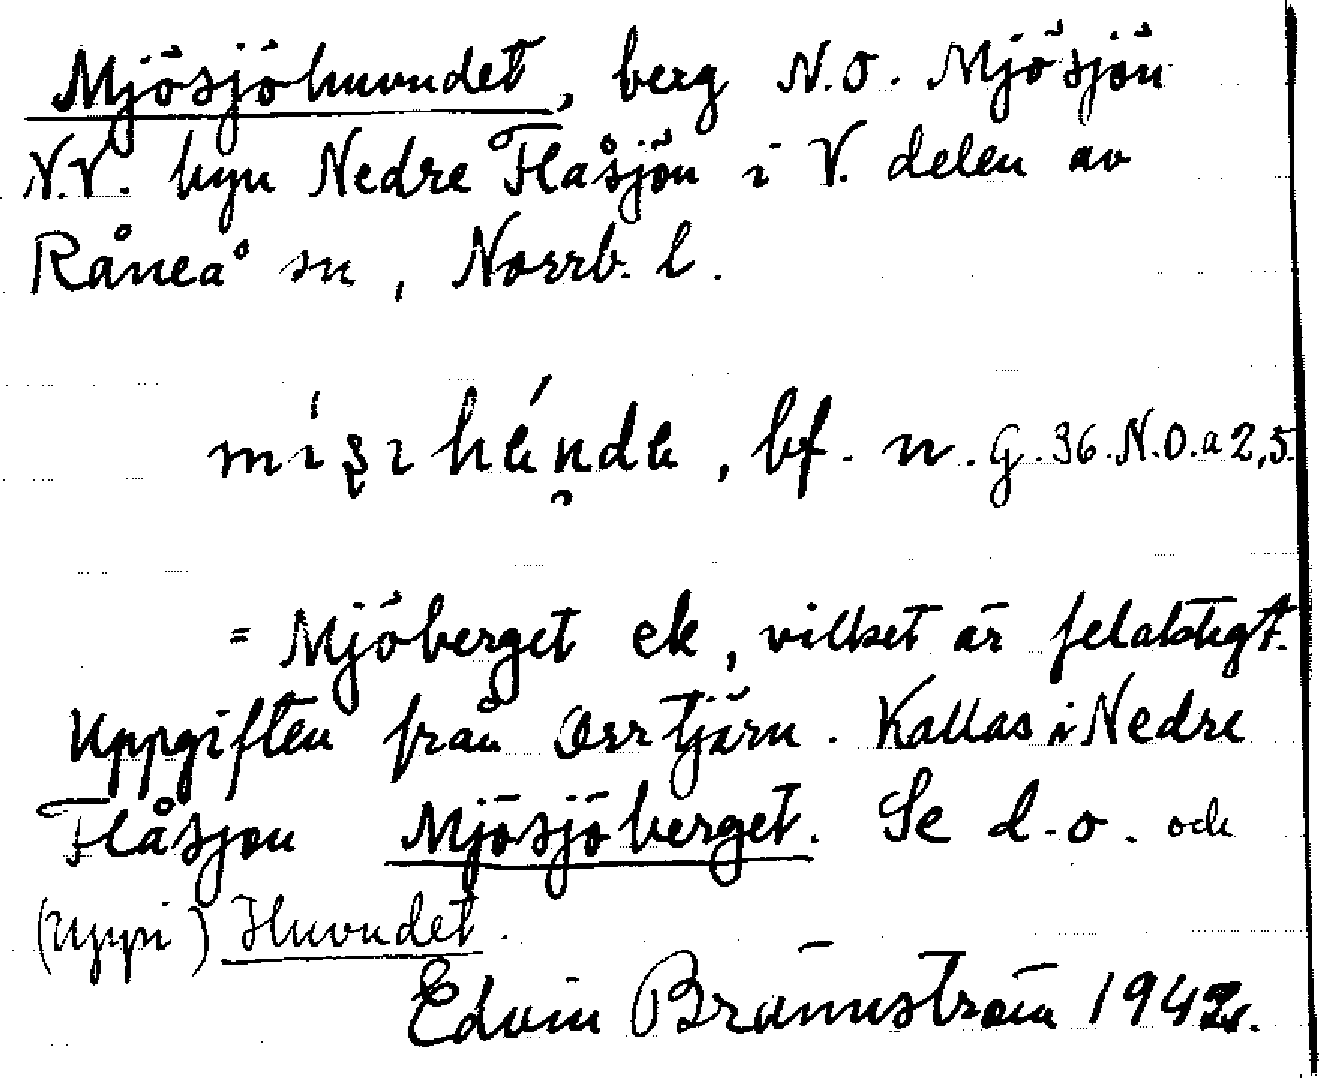 Mjösjöhuvudet, berg N.O. Mjösjön
N.V. byn Nedre Flåsjön i V. delen av
Råneå sn, Norrb. l.
bf. n. G. 36. N.O. a 2,5.
= Mjöberget ek, vilket är felaktigt.
Uppgiften från Orrtjärn. Kallas i Nedre
Flåsjön Mjösjöberget. Se d.o. och
(Uppi) Huvudet.
Edvin Brännström 1942.